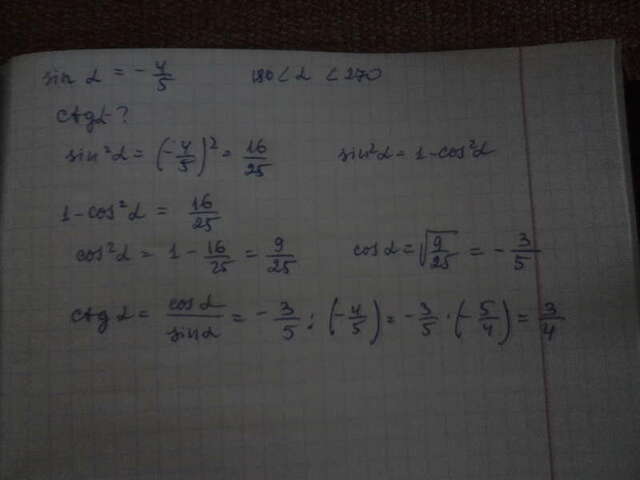 sin α = - 4/5 180 < α < 270
ctg α ?
sin²α = (- 4/5)² = 16/25 sin²α = 1 - cos²α
1 - cos²α = 16/25
cos²α = 1 - 16/25 = 9/25 cos α = √9/25 = - 3/5
ctg α = cos α/sin α = - 3/5 : (- 4/5) = - 3/5 · (- 5/4) = 3/4